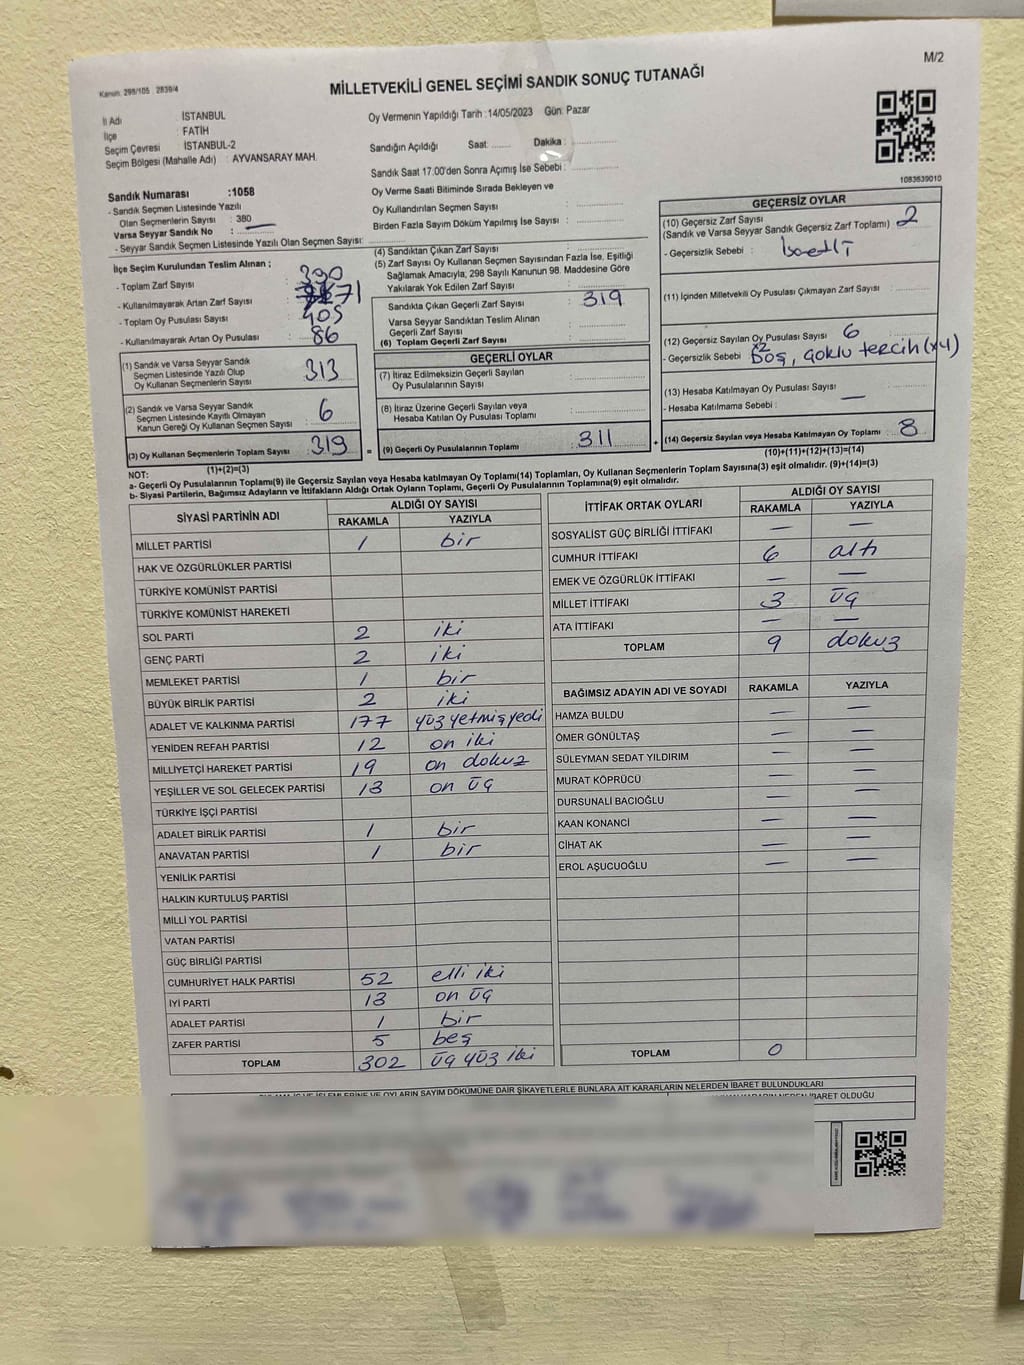 M/2
Kanun: 298/105 : 2839/4
MİLLETVEKİLİ GENEL SEÇİMİ SANDIK SONUÇ TUTANAĞI
İl Adı : İSTANBUL
İlçe : FATİH
Seçim Çevresi : İSTANBUL-2
Seçim Bölgesi (Mahalle Adı) : AYVANSARAY MAH.
Oy Vermenin Yapıldığı Tarih :14/05/2023 Gün: Pazar
Sandığın Açıldığı Saat: ........ Dakika: ................
Sandık Saat 17.00'den Sonra Açımış İse Sebebi : ................
Oy Verme Saati Bitiminde Sırada Bekleyen ve
Oy Kullandırılan Seçmen Sayısı : ................
Birden Fazla Sayım Döküm Yapılmış İse Sayısı : ................
1083639010
Sandık Numarası :1058
- Sandık Seçmen Listesinde Yazılı
Olan Seçmenlerin Sayısı : 380
Varsa Seyyar Sandık No : —
- Seyyar Sandık Seçmen Listesinde Yazılı Olan Seçmen Sayısı:
İlçe Seçim Kurulundan Teslim Alınan ;
- Toplam Zarf Sayısı : 390
- Kullanılmayarak Artan Zarf Sayısı : 71
- Toplam Oy Pusulası Sayısı : 405
- Kullanılmayarak Artan Oy Pusulası : 86
(1) Sandık ve Varsa Seyyar Sandık
Seçmen Listesinde Yazılı Olup
Oy Kullanan Seçmenlerin Sayısı : 313
(2) Sandık ve Varsa Seyyar Sandık
Seçmen Listesinde Kayıtlı Olmayan
Kanun Gereği Oy Kullanan Seçmen Sayısı : 6
(3) Oy Kullanan Seçmenlerin Toplam Sayısı : 319
(1)+(2)=(3)
(4) Sandıktan Çıkan Zarf Sayısı : ................
(5) Zarf Sayısı Oy Kullanan Seçmen Sayısından Fazla İse, Eşitliği
Sağlamak Amacıyla, 298 Sayılı Kanunun 98. Maddesine Göre
Yakılarak Yok Edilen Zarf Sayısı : ................
Sandıkta Çıkan Geçerli Zarf Sayısı : 319
Varsa Seyyar Sandıktan Teslim Alınan
Geçerli Zarf Sayısı : ................
(6) Toplam Geçerli Zarf Sayısı : ................
GEÇERLİ OYLAR
(7) İtiraz Edilmeksizin Geçerli Sayılan
Oy Pusulalarının Sayısı : ................
(8) İtiraz Üzerine Geçerli Sayılan veya
Hesaba Katılan Oy Pusulası Toplamı : ................
= (9) Geçerli Oy Pusulalarının Toplamı : 311
GEÇERSİZ OYLAR
(10) Geçersiz Zarf Sayısı : 2
(Sandık ve Varsa Seyyar Sandık Geçersiz Zarf Toplamı)
- Geçersizlik Sebebi :
(11) İçinden Milletvekili Oy Pusulası Çıkmayan Zarf Sayısı : ................
(12) Geçersiz Sayılan Oy Pusulası Sayısı : 6
- Geçersizlik Sebebi : x2 Boş, çoklu tercih (x4)
(13) Hesaba Katılmayan Oy Pusulası Sayısı : ................
- Hesaba Katılmama Sebebi : —
+ (14) Geçersiz Sayılan veya Hesaba Katılmayan Oy Toplamı : 8
(10)+(11)+(12)+(13)=(14)
NOT:
a- Geçerli Oy Pusulalarının Toplamı(9) ile Geçersiz Sayılan veya Hesaba katılmayan Oy Toplamı(14) Toplamları, Oy Kullanan Seçmenlerin Toplam Sayısına(3) eşit olmalıdır. (9)+(14)=(3)
b- Siyasi Partilerin, Bağımsız Adayların ve İttifakların Aldığı Ortak Oyların Toplamı, Geçerli Oy Pusulalarının Toplamına(9) eşit olmalıdır.
SİYASİ PARTİNİN ADI ALDIĞI OY SAYISI
RAKAMLA YAZIYLA
MİLLET PARTİSİ 1 bir
HAK VE ÖZGÜRLÜKLER PARTİSİ
TÜRKİYE KOMÜNİST PARTİSİ
TÜRKİYE KOMÜNİST HAREKETİ
SOL PARTİ 2 iki
GENÇ PARTİ 2 iki
MEMLEKET PARTİSİ 1 bir
BÜYÜK BİRLİK PARTİSİ 2 iki
ADALET VE KALKINMA PARTİSİ 177 yüz yetmiş yedi
YENİDEN REFAH PARTİSİ 12 on iki
MİLLİYETÇİ HAREKET PARTİSİ 19 on dokuz
YEŞİLLER VE SOL GELECEK PARTİSİ 13 on üç
TÜRKİYE İŞÇİ PARTİSİ
ADALET BİRLİK PARTİSİ 1 bir
ANAVATAN PARTİSİ 1 bir
YENİLİK PARTİSİ
HALKIN KURTULUŞ PARTİSİ
MİLLİ YOL PARTİSİ
VATAN PARTİSİ
GÜÇ BİRLİĞİ PARTİSİ
CUMHURİYET HALK PARTİSİ 52 elli iki
İYİ PARTİ 13 on üç
ADALET PARTİSİ 1 bir
ZAFER PARTİSİ 5 beş
TOPLAM 302 üç yüz iki
İTTİFAK ORTAK OYLARI ALDIĞI OY SAYISI
RAKAMLA YAZIYLA
SOSYALİST GÜÇ BİRLİĞİ İTTİFAKI — —
CUMHUR İTTİFAKI 6 altı
EMEK VE ÖZGÜRLÜK İTTİFAKI — —
MİLLET İTTİFAKI 3 üç
ATA İTTİFAKI — —
TOPLAM 9 dokuz
BAĞIMSIZ ADAYIN ADI VE SOYADI RAKAMLA YAZIYLA
HAMZA BULDU — —
ÖMER GÖNÜLTAŞ — —
SÜLEYMAN SEDAT YILDIRIM — —
MURAT KÖPRÜCÜ — —
DURSUNALİ BACIOĞLU — —
KAAN KONANCİ — —
CİHAT AK — —
EROL AŞUCUOĞLU — —
TOPLAM 0
İŞLEMLERİNE VE OYLARIN SAYIM DÖKÜMÜNE DAİR ŞİKAYETLERLE BUNLARA AİT KARARLARIN NELERDEN İBARET BULUNDUKLARI
İBARET OLDUĞU